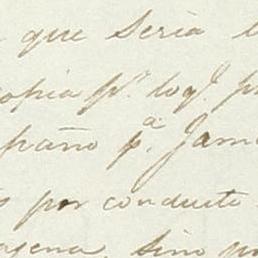 que Seria
copia pr. loq.l
paño pa. Jam
por conducto
gena, sino